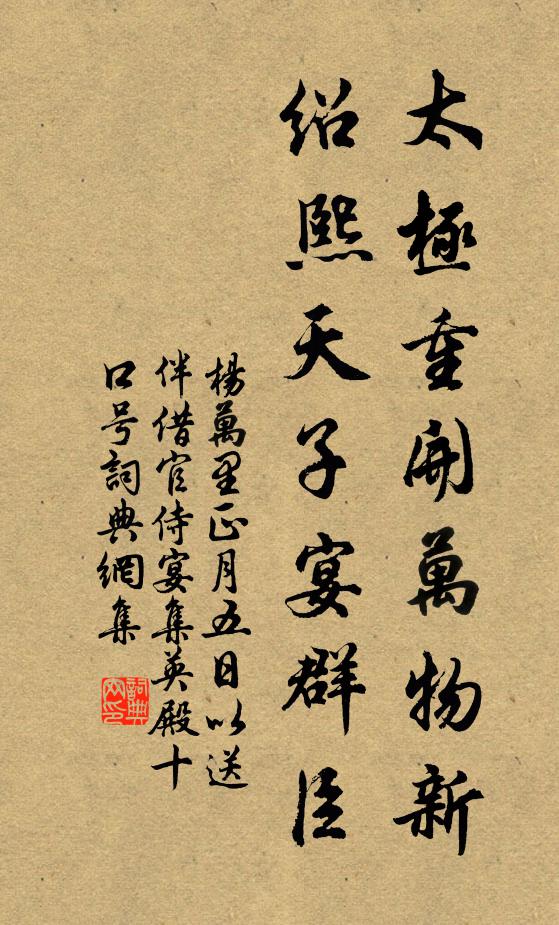 太極重開萬物新
紹熙天子宴群臣
楊萬里正月五日以送
伴借官侍宴集英殿十
口号詞典網集
詞典网印